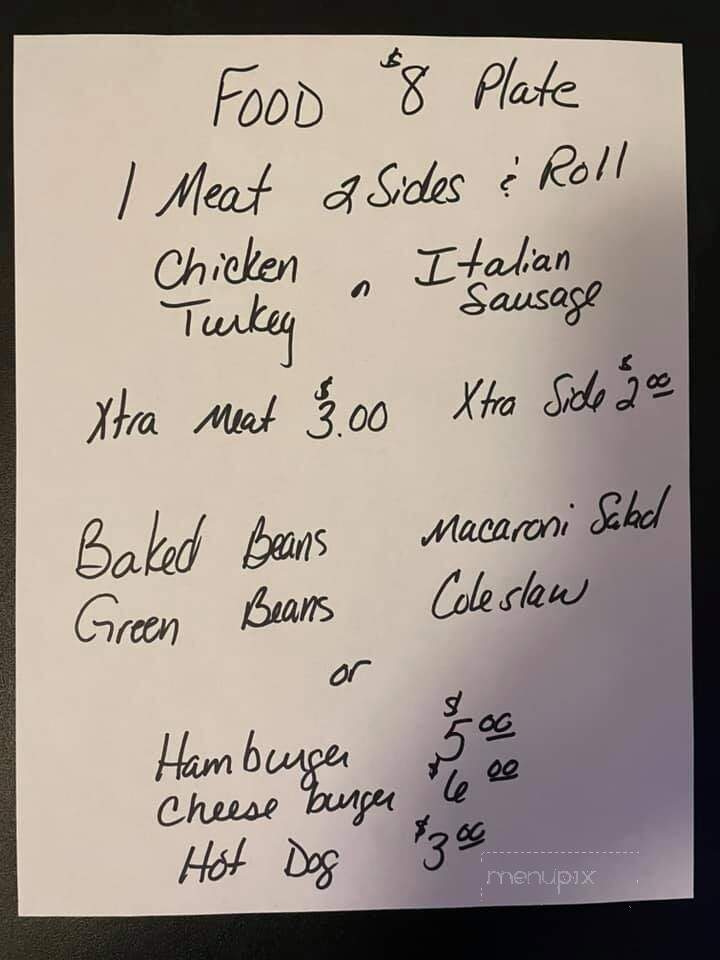 FOOD $8 Plate
1 Meat 2 Sides & Roll
Chicken Italian
Turkey Sausage
Xtra Meat $3.00 Xtra Side $2.00
Baked Beans Macaroni Salad
Green Beans Coleslaw
or
Hamburger $5.00
Cheese burger $6.00
Hot Dog $3.00
menupix